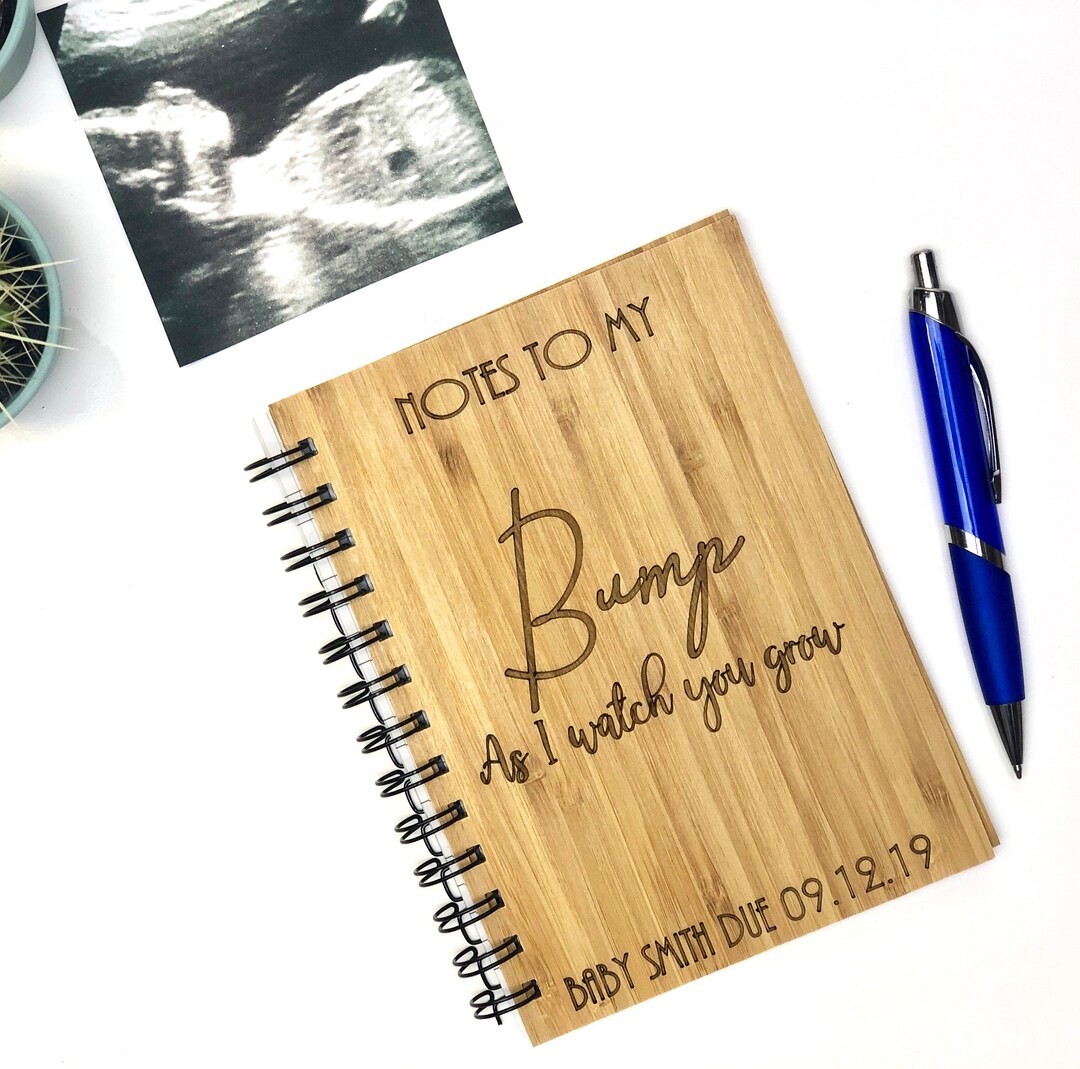 NOTES TO MY
Bump
As I watch you grow
BABY SMITH DUE 09.12.19